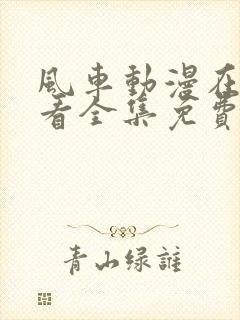 風車動漫在
看全集免費
青山绿誰